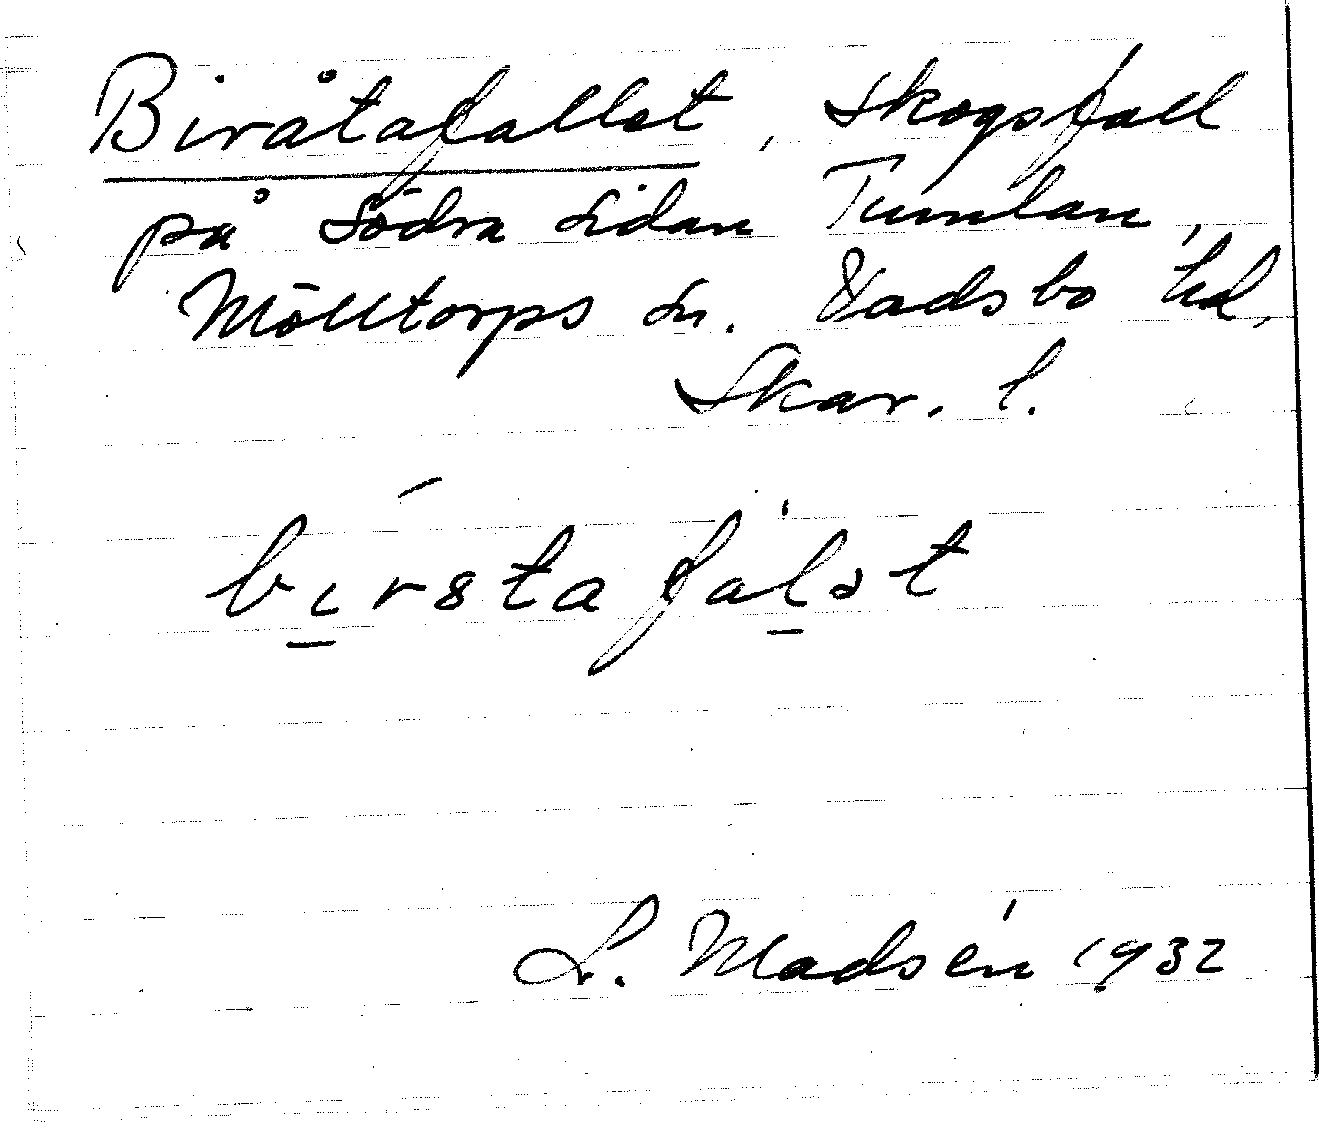 Biråtafallet, skogsfall
på södra sidan Tumlan,
Mölltorps sn. Vadsbo hd,
Skar. l.
L. Madsén 1932